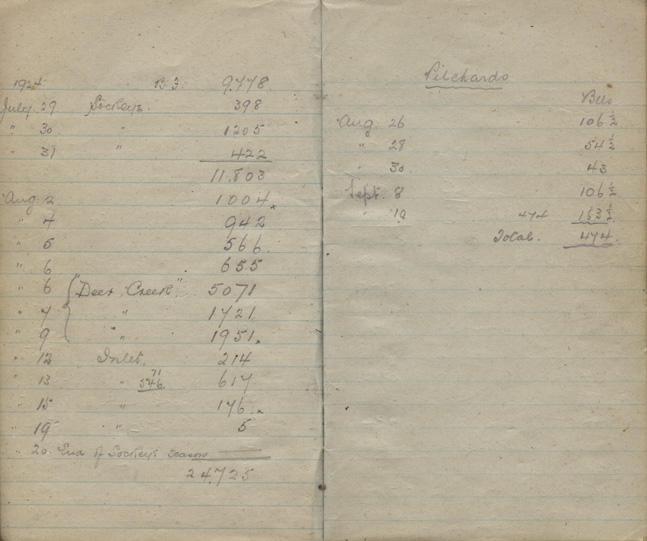 1924 9,778
July 29 Sockeye. 398
" 30 " 1205
" 31 " 422
11.803
Aug 2 1004
" 4 942
" 5 566
" 6 655
" 6 "Deer Creek" 5071
" 7 " 1721
" 9 " 1951
" 12 Inlet. 214
71
" 13 " 546 617
" 15 " 176
" 19 " 5
" 20 End of Sockeye season
24,725
Pilchards
Bbls
Aug. 26 106 ½
" 28 54 ½
" 30 43
Sept. 8 106 ½
" 19 474 163 ½
Total. 474.